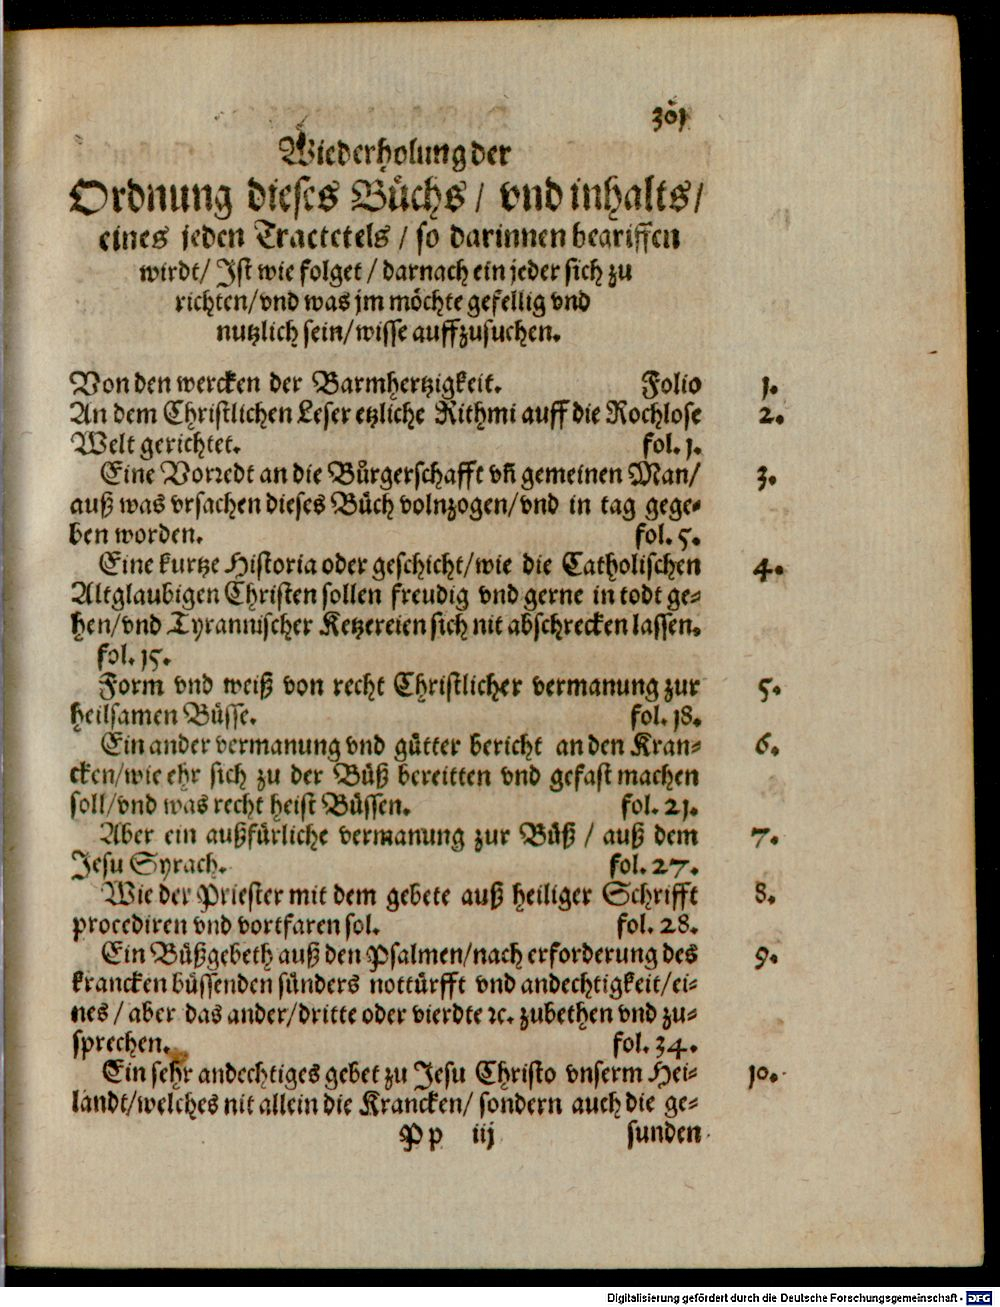 301
Wiederholung der
Ordnung dieses Bůchs / vnd inhalts /
eines jeden Tractetels / so darinnen begriffen
wirdt / Ist wie folget / darnach ein jeder sich zu
richten / vnd was jm möchte gefellig vnd
nutzlich sein / wisse auffzusuchen.
Von den wercken der Barmhertzigkeit. Folio 1.
An dem Christlichen Leser etzliche Rithmi auff die Rochlose 2.
Welt gerichtet. fol. 1.
Eine Vorredt an die Bůrgerschafft vn̄ gemeinen Man / 3.
auß was vrsachen dieses Bůch volnzogen / vnd in tag gege⸗
ben worden. fol. 5.
Eine kurtze Historia oder geschicht / wie die Catholischen 4.
Altglaubigen Christen sollen freudig vnd gerne in todt ge⸗
hen / vnd Tyrannischer Ketzereien sich nit abschrecken lassen.
fol. 15.
Form vnd weiß von recht Christlicher vermanung zur 5.
heilsamen Bůsse. fol. 18.
Ein ander vermanung vnd gůtter bericht an den Kran⸗ 6.
cken / wie ehr sich zu der Bůß bereitten vnd gefast machen
soll / vnd was recht heist Bůssen. fol. 21.
Aber ein außfůrliche vermanung zur Bůß / auß dem 7.
Jesu Syrach. fol. 27.
Wie der Priester mit dem gebete auß heiliger Schrifft 8.
procediren vnd vortfaren sol. fol. 28.
Ein Bůßgebeth auß den Psalmen / nach erforderung des 9.
krancken bůssenden sůnders nottůrfft vnd andechtigkeit / ei⸗
nes / aber das ander / dritte oder vierdte ꝛc. zubethen vnd zu⸗
sprechen. fol. 34.
Ein sehr andechtiges gebet zu Jesu Christo vnserm Hei⸗ 10.
landt / welches nit allein die Krancken / sondern auch die ge⸗
Pp iij sunden
Digitalisierung gefördert durch die Deutsche Forschungsgemeinschaft - DFG